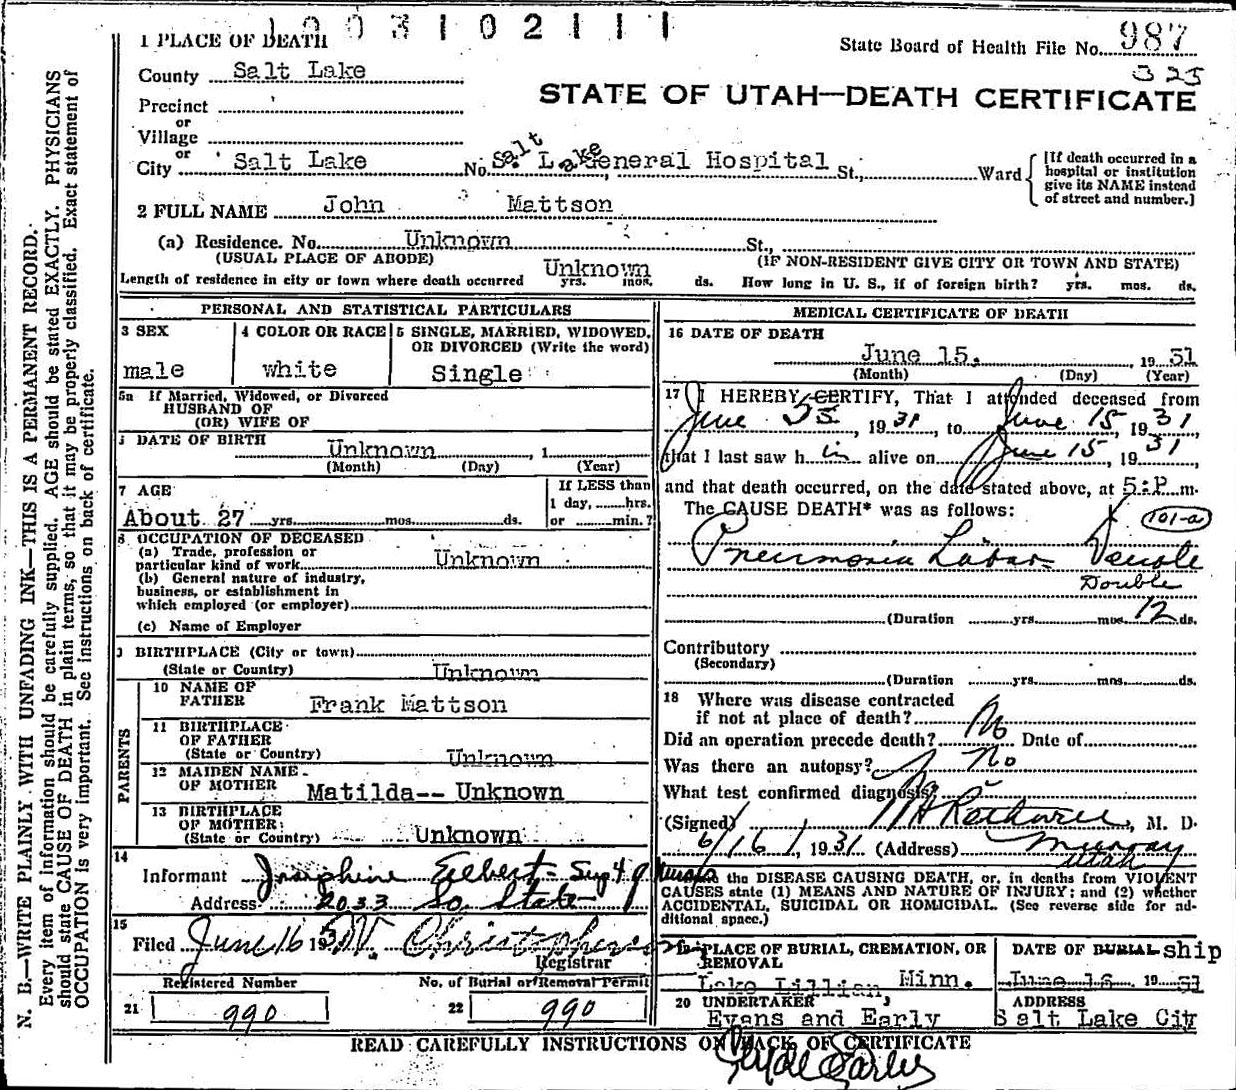 1003102111
1 PLACE OF DEATH
State Board of Health File No. 987
325
County Salt Lake
STATE OF UTAH—DEATH CERTIFICATE
Precinct
or
Village
or
City Salt Lake No. Salt Lake General Hospital St., Ward
[If death occurred in a
hospital or institution
give its NAME instead
of street and number.]
2 FULL NAME John Mattson
(a) Residence. No. Unknown St.,
(USUAL PLACE OF ABODE) (IF NON-RESIDENT GIVE CITY OR TOWN AND STATE)
Length of residence in city or town where death occurred Unknown yrs. mos. ds. How long in U. S., if of foreign birth? yrs. mos. ds.
PERSONAL AND STATISTICAL PARTICULARS
3 SEX
male
4 COLOR OR RACE
white
5 SINGLE, MARRIED, WIDOWED,
OR DIVORCED (Write the word)
Single
5a If Married, Widowed, or Divorced
HUSBAND OF
(OR) WIFE OF
DATE OF BIRTH Unknown , 1
(Month) (Day) (Year)
7 AGE
About 27 yrs. mos. ds.
If LESS than
1 day, hrs.
or min.?
8 OCCUPATION OF DECEASED
(a) Trade, profession or
particular kind of work Unknown
(b) General nature of industry,
business, or establishment in
which employed (or employer)
(c) Name of Employer
BIRTHPLACE (City or town)
(State or Country) Unknown
PARENTS
10 NAME OF
FATHER Frank Mattson
11 BIRTHPLACE
OF FATHER
(State or Country) Unknown
12 MAIDEN NAME
OF MOTHER Matilda-- Unknown
13 BIRTHPLACE
OF MOTHER
(State or Country) Unknown
14
Informant Josephine
Address 2033 So. State
15
Filed June 16 193
Registrar
Registered Number
21 990
No. of Burial or Removal Permit
22 990
MEDICAL CERTIFICATE OF DEATH
16 DATE OF DEATH
June 15, 1931
(Month) (Day) (Year)
17 I HEREBY CERTIFY, That I attended deceased from
June 1931, to June 15, 1931,
that I last saw h im alive on June 15, 1931,
and that death occurred, on the date stated above, at 5:P m.
The CAUSE DEATH* was as follows:
101-a
Pneumonia Lobar Double
Double
(Duration yrs. mos. 12 ds.
Contributory
(Secondary)
(Duration yrs. mos. ds.
18 Where was disease contracted
if not at place of death? No
Did an operation precede death? Date of
Was there an autopsy? No
What test confirmed diagnosis?
(Signed) , M. D.
6/16, 1931 (Address) Murray
Utah
the DISEASE CAUSING DEATH, or, in deaths from VIOLENT
CAUSES state (1) MEANS AND NATURE OF INJURY; and (2) whether
ACCIDENTAL, SUICIDAL OR HOMICIDAL. (See reverse side for ad-
ditional space.)
19 PLACE OF BURIAL, CREMATION, OR
REMOVAL
Lake Lillian Minn.
DATE OF BURIAL ship
June 16 1931
20 UNDERTAKER
Evans and Early
ADDRESS
Salt Lake City
READ CAREFULLY INSTRUCTIONS ON BACK OF CERTIFICATE
N. B.—WRITE PLAINLY WITH UNFADING INK—THIS IS A PERMANENT RECORD.
Every item of information should be carefully supplied. AGE should be stated EXACTLY. PHYSICIANS
should state CAUSE OF DEATH in plain terms, so that it may be properly classified. Exact statement of
OCCUPATION is very important. See instructions on back of certificate.